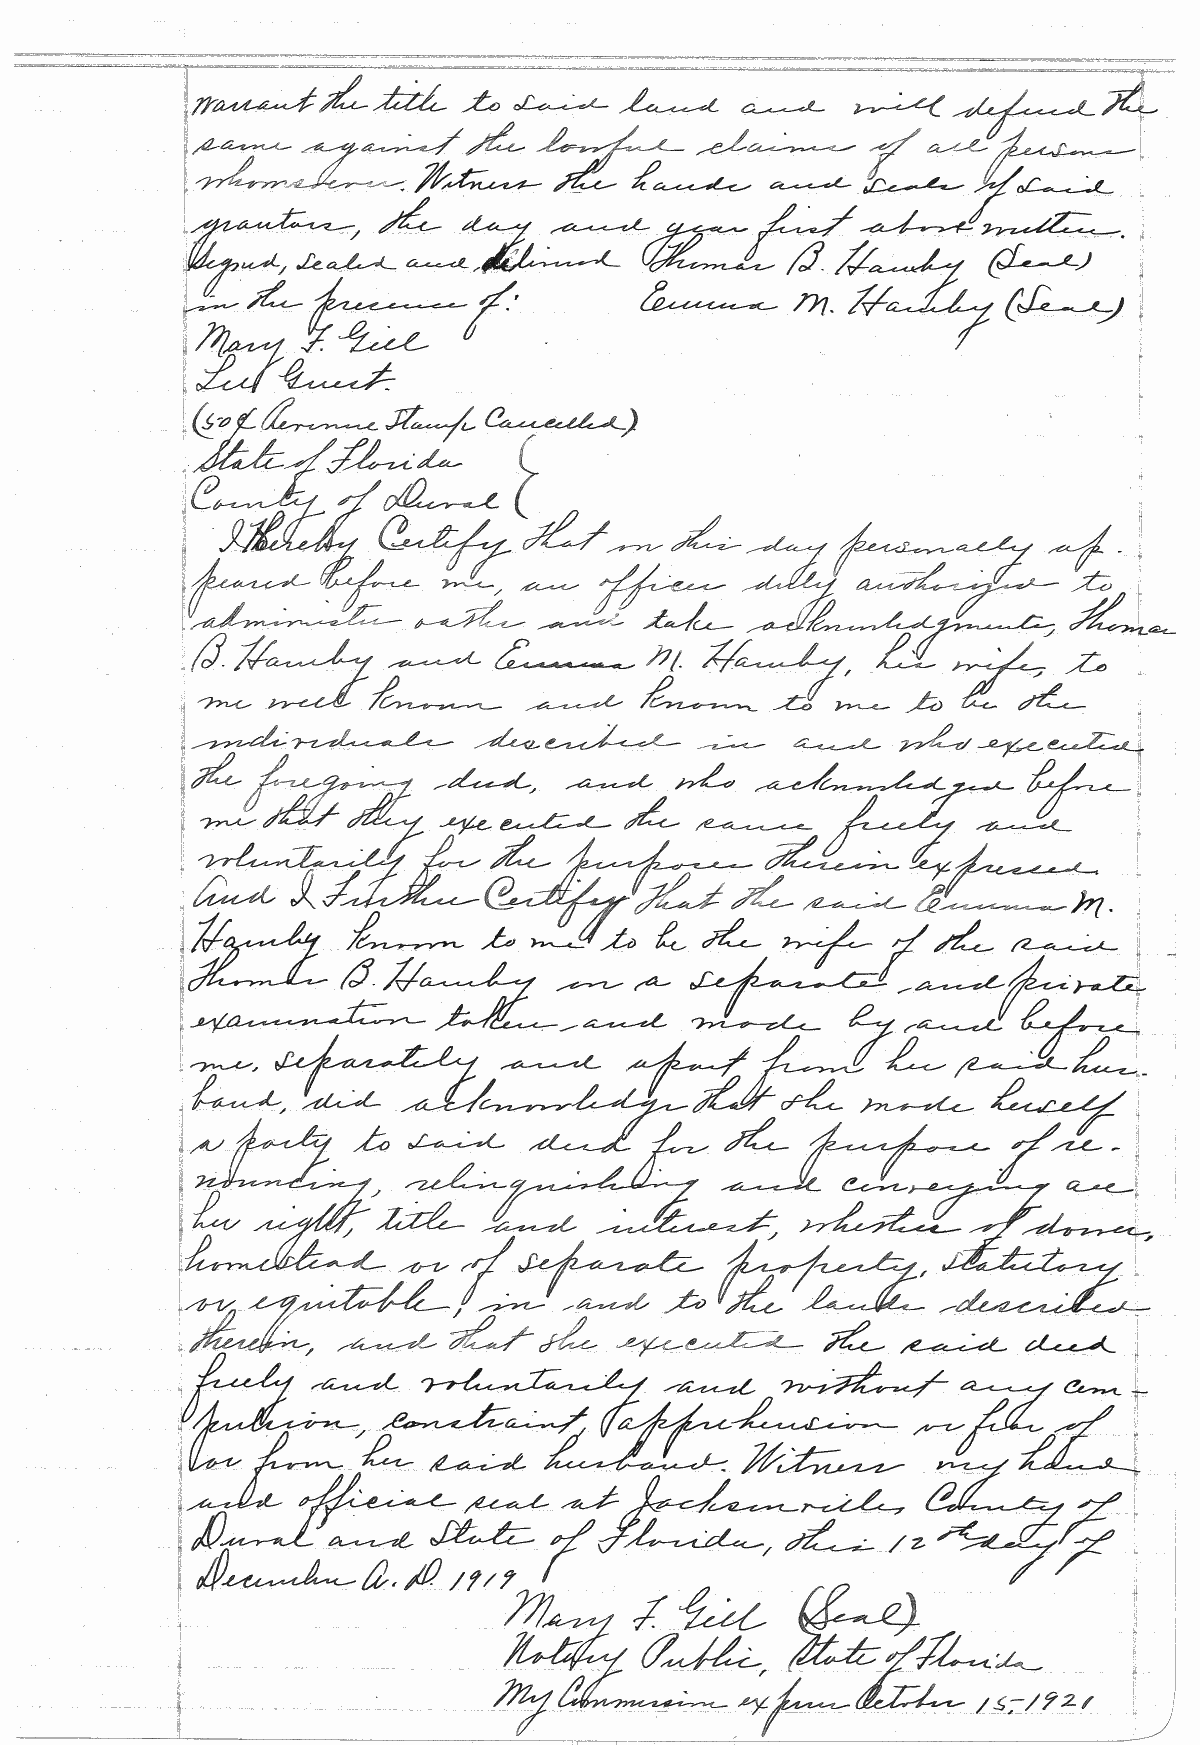 warrant the title to said land and will defend the
same against the lawful claims of all persons
whomsoever. Witness the hands and seals of said
grantors, the day and year first above written.
Signed, sealed and delivered Thomas B. Hamby (Seal)
in the presence of: Emma M. Hamby (Seal)
Mary F. Gill
Guest.
(50¢ Revenue Stamp Cancelled)
State of Florida
County of Duval
I Hereby Certify That on this day personally ap-
peared before me, an officer duly authorized to
administer oaths and take acknowledgments, Thomas
B. Hamby and Emma M. Hamby, his wife, to
me well known and known to me to be the
individuals described in and who executed
the foregoing deed, and who acknowledged before
me that they executed the same freely and
voluntarily for the purposes therein expressed.
And I Further Certify That the said Emma M.
Hamby known to me to be the wife of the said
Thomas B. Hamby on a separate and private
examination taken and made by and before
me, separately and apart from her said hus-
band, did acknowledge that she made herself
a party to said deed for the purpose of re-
nouncing, relinquishing and conveying all
her right, title and interest, whether of dower,
homestead or of separate property, statutory
or equitable, in and to the lands described
therein, and that she executed the said deed
freely and voluntarily and without any com-
pulsion, constraint, apprehension or fear of
or from her said husband. Witness my hand
and official seal at Jacksonville, County of
Duval and State of Florida, this 12th day of
December A. D. 1919
Mary F. Gill (Seal)
Notary Public, State of Florida
My Commission expires October 15, 1921